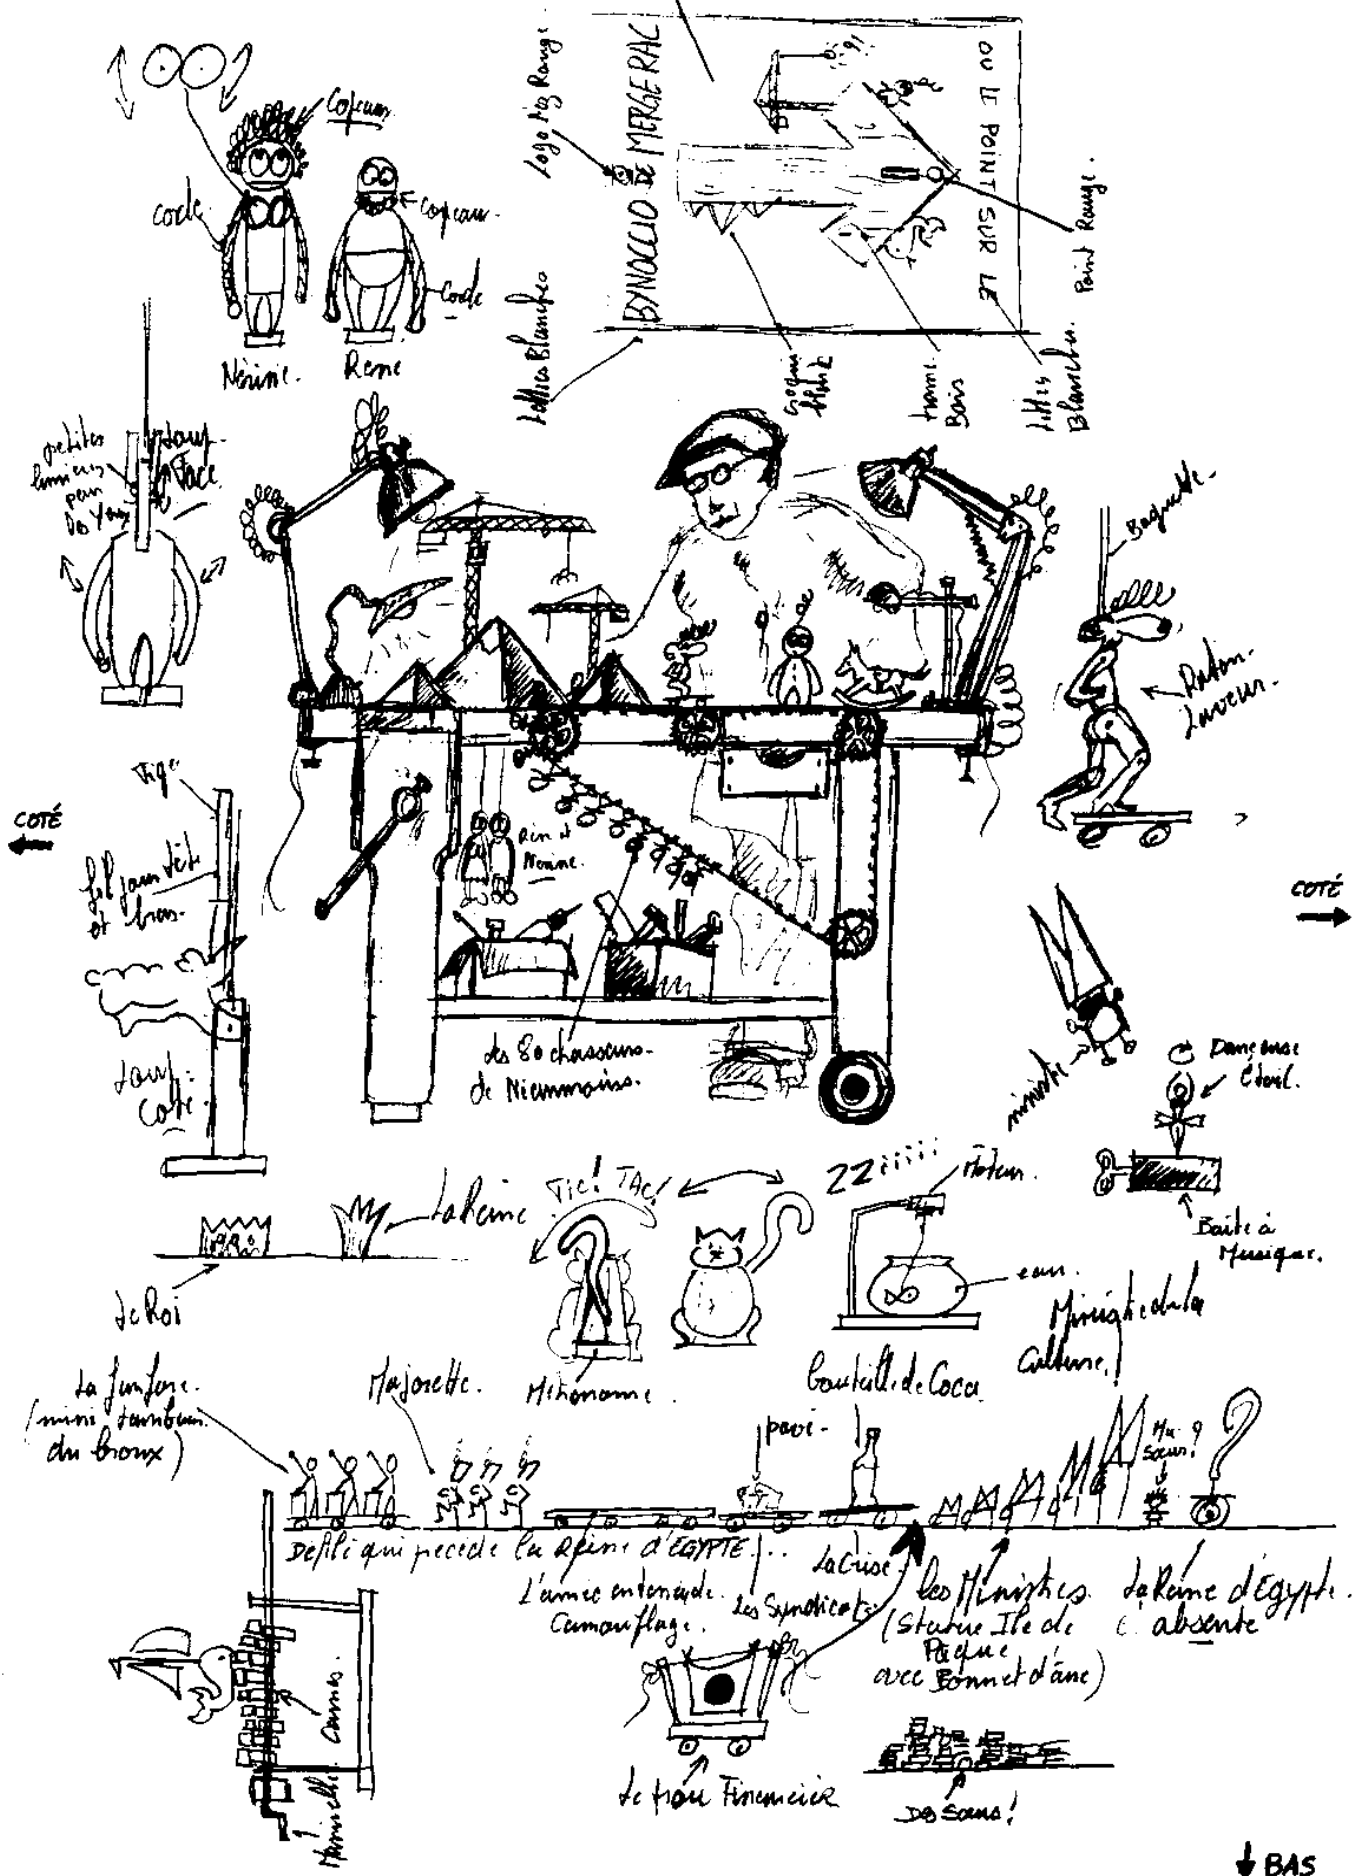 Copeaux
corde
copeau
Corde
Nérine.
René
Logo Nez Rouge
BYNOCCIO DE MERGERAC
OU LE POINT SUR LE
Point Rouge.
Lettres Blanches
trame
Bois
Lettres
Blanches.
petites
lumières
pour
les Yeux
Loup
Face.
Baguette.
Raton
Laveur.
Tige
COTÉ
fil pour tête
et bras.
René et
Nérine.
COTÉ
Loup
Coté.
les 80 chasseurs
de Niemmoins.
ministre
Danseuse
Etoile.
Boite à
Musique.
TIC! TAC!
ZZ
Moteur.
La Reine
Le Roi
eau.
Ministre de la
Culture!
La fanfare.
(mini tambour
du bronx)
Majorette.
Métronome.
Bouteille de Coca
pavé.
Ma
soeur?
Défilé qui précède la Reine d'EGYPTE...
L'armée en tenue de
Camouflage.
Les Syndicats
La Crise.
Les Ministres.
(Statue Ile de
Pâque
avec Bonnet d'âne)
La Reine d'Egypte.
absente
Cames.
Manivelle
Le trou Financier
Des Sous!
BAS